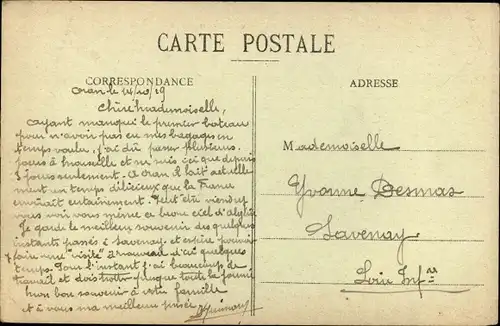 CARTE POSTALE
CORRESPONDANCE
ADRESSE
Oran le 14/10/19
Chère Mademoiselle,
Ayant manqué le premier bateau
pour n'avoir pas eu mes bagages en
temps voulu, j'ai dû passer plusieurs
jours à Marseille et ne suis ici que depuis
3 jours seulement. A Oran il fait actuelle
ment un temps délicieux que la France
envierait certainement. Peut être viendrez
vous voir vous même ce beau ciel d'Algérie
Je garde le meilleur souvenir des quelques
instants passés à Savenay et espère pouvoir
faire une "visite" à nouveau d'ici quelques
temps. Pour l'instant j'ai beaucoup de
travail et dois presque toute la journée
mon bon souvenir à votre famille
et à vous ma meilleure pensée
Mademoiselle
Yvonne Desmas
Savenay
Loire Infre